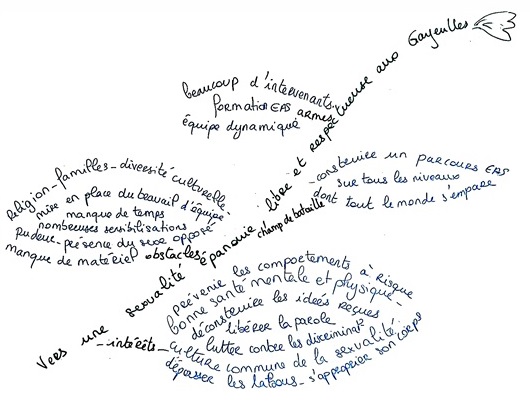 Vers une sexualité épanouie libre et respectueuse aux Gayeulles
beaucoup d'intervenants
formation EAS armes
équipe dynamique
religion - familles - diversité culturelle
mise en place du travail d'équipe
manque de temps
nombreuses sensibilisations
pudeur - présence du sexe opposé
manque de matériel obstacles
champ de bataille - construire un parcours EAS
sur tous les niveaux
dont tout le monde s'empare
prévenir les comportements à risque
bonne santé mentale et physique -
déconstruire les idées reçues
libérer la parole
lutter contre les discriminat°
- intérêts - culture commune de la sexualité
dépasser les tabous - s'approprier son corps